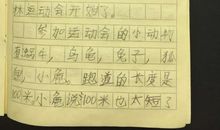 林运动会开始了。
参加运动会的小动物
有蜗牛，乌龟，兔子，狐
狸，小鹿。跑道的长度是
100米小鹿说100米也太短了